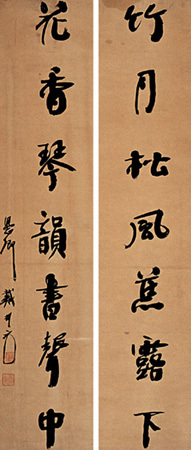 竹月松風蕉露下
花香琴韻書聲中
戴